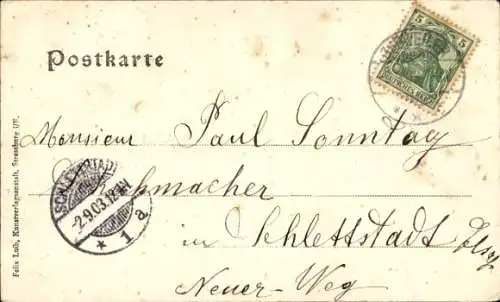 Postkarte
5
DEUTSCHES REICH
Monsieur Paul Sonntag
SCHLETTSTADT
2.9.03.
* 1 a
in Schlettstadt Elsaß
Neuer-Weg
Felix Luib, Kunstverlagsanstalt, Strassburg i/E.